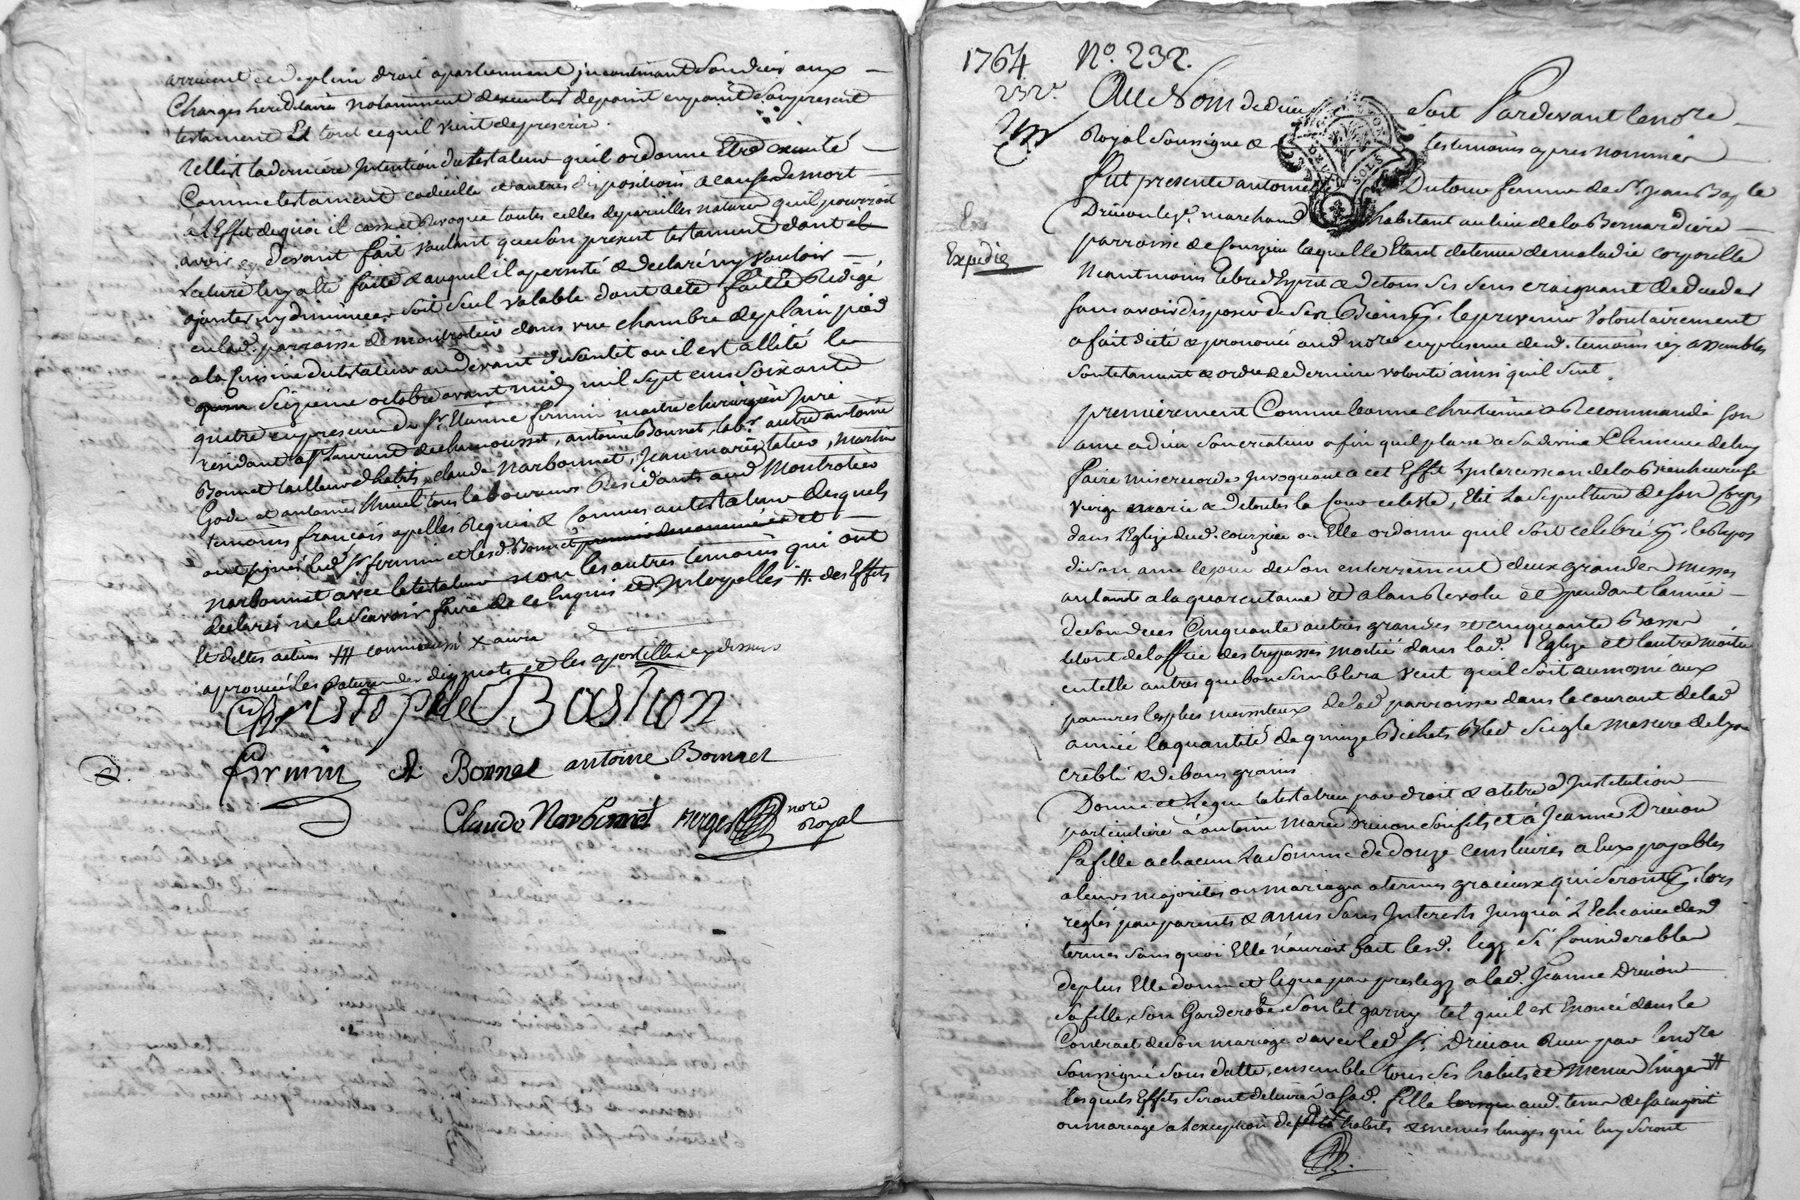 arrivant de plein droit apartiennent incontinant Son deces aux
Charges hereditaires notamment d'executer de point en point Son present
testament Et tout ce qu'il vient de prescrire.
telle est la derniere Intention du testateur qu'il ordonne Etre executé
Comme testament codicille et autres dispositions a cause de mort
a l'Effet de quoi il casse et Revoque toutes celles de pareilles natures qu'il pourroit
avoir cy devant fait voulant que son present testament dont
lecture luy a été faite & auquel il a persisté & declaré ny vouloir
ajouter ny diminuer soit seul valable dont acte fait & Redigé
en lad. parroisse de montrotier dans une chambre de plain pied
a la Cuisine du testateur au devant du lit ou il est allité le
seizieme octobre avant midy mil sept cens soixante
quatre en presence du Sr. Etienne firmin maitre chirurgien Juré
residant a St Laurent de chamousset, antoine Bonnet, labr. autre antoine
Bonnet tailleur d'habits, claude Narbonnet, Jean marie, Martin
Gode et antoine tous laboureurs Residants aud Montrotier
temoins francois apellés Requis & Connus au testateur desquels
ont signé led Sr firmin et lesd. Bonnet premier denommé et
Narbonnet avec le testateur non les autres temoins qui ont
declarés ne le Scavoir faire de ce Enquis et Interpellés # des Effets
Et dettes actives ## X aura
aprouvé les ratures de dix mots et les apostilles cy dessus
Christophle Bastion
firmin A. Bonnet antoine Bonnet
Claude Narbonnet nore Royal
1764 No. 232.
232e.
Au Nom de dieu Soit Pardevant le nore
Royal Soussigné & temoins apres nommés
DEUX SOLS
Fut presente antoinette Dutour femme de Sr. Jean Bap.te
Drivon leg.e marchand habitant au lieu de la Bernardiere
Expedié
parroisse de Courzieu laquelle Etant detenue de maladie corporelle
Neantmoins libre d'Esprit & de tous ses sens craignant de deceder
sans avoir disposé de Ses Biens, le prevenir volontairement
a fait dicté & prononcé aud nore en presence desd. temoins cy assemblés
son testament & ordre de derniere volonté ainsi qu'il Suit.
premierement Comme bonne chretienne a Recommandé Son
ame a dieu son createur afin qu'il plaise a sa divine Clemence de luy
Faire misericorde Invoquant a cet Effet L'intercession de la Bienheureuse
vierge marie & de toute la Cour celeste, Elit La Sepulture de son Corps
dans l'Eglize dud. courzieu ou Elle ordonne quil soit celebré pr. le Repos
de son ame le jour de Son enterrement deux grandes messes
autant a la quarantaine et a l'an Revolu et pendant l'année
de son deces Cinquante autres grandes et cinquante Basses
le tout de l'office des trepassés moitié dans lad. Eglize et l'autre moitié
en telle autres que bon Semblera veut qu'il soit aumone aux
pauvres les plus necessiteux de lad parroisse dans le courant de lad
année la quantité de quinze Bichets Bled Seigle mesure de Lyon
criblé & de bons grains
Donne et Legue la testatrice par droit & a titre d'Institution
particuliere à antoine Marie Drivon son fils et à Jeanne Drivon
Sa fille a chacun La Somme de douze cens livres a Eux payables
a leurs majorités ou mariage a termes gracieux qui seront pr. lors
reglés par parents & amis Sans Interests Jusqu'a l'Echeance desd
termes sans quoi Elle n'auroit fait lesd. legs Si Considerables
de plus Elle donne et legue par prelegs a lad. Jeanne Drivon
Sa fille, Son Garderobe, Son lit garny tel qu'il est Enoncé dans le
Contract de son mariage d'avec led Sr. Drivon Recu par le nore
Soussigné Sous datte, ensemble tous Ses habits et Menus linges #
lesquels Effets Seront delivrés a Sad. fille aud. terme de sa majorité
ou mariage a l'exception de habits & menus linges qui luy seront